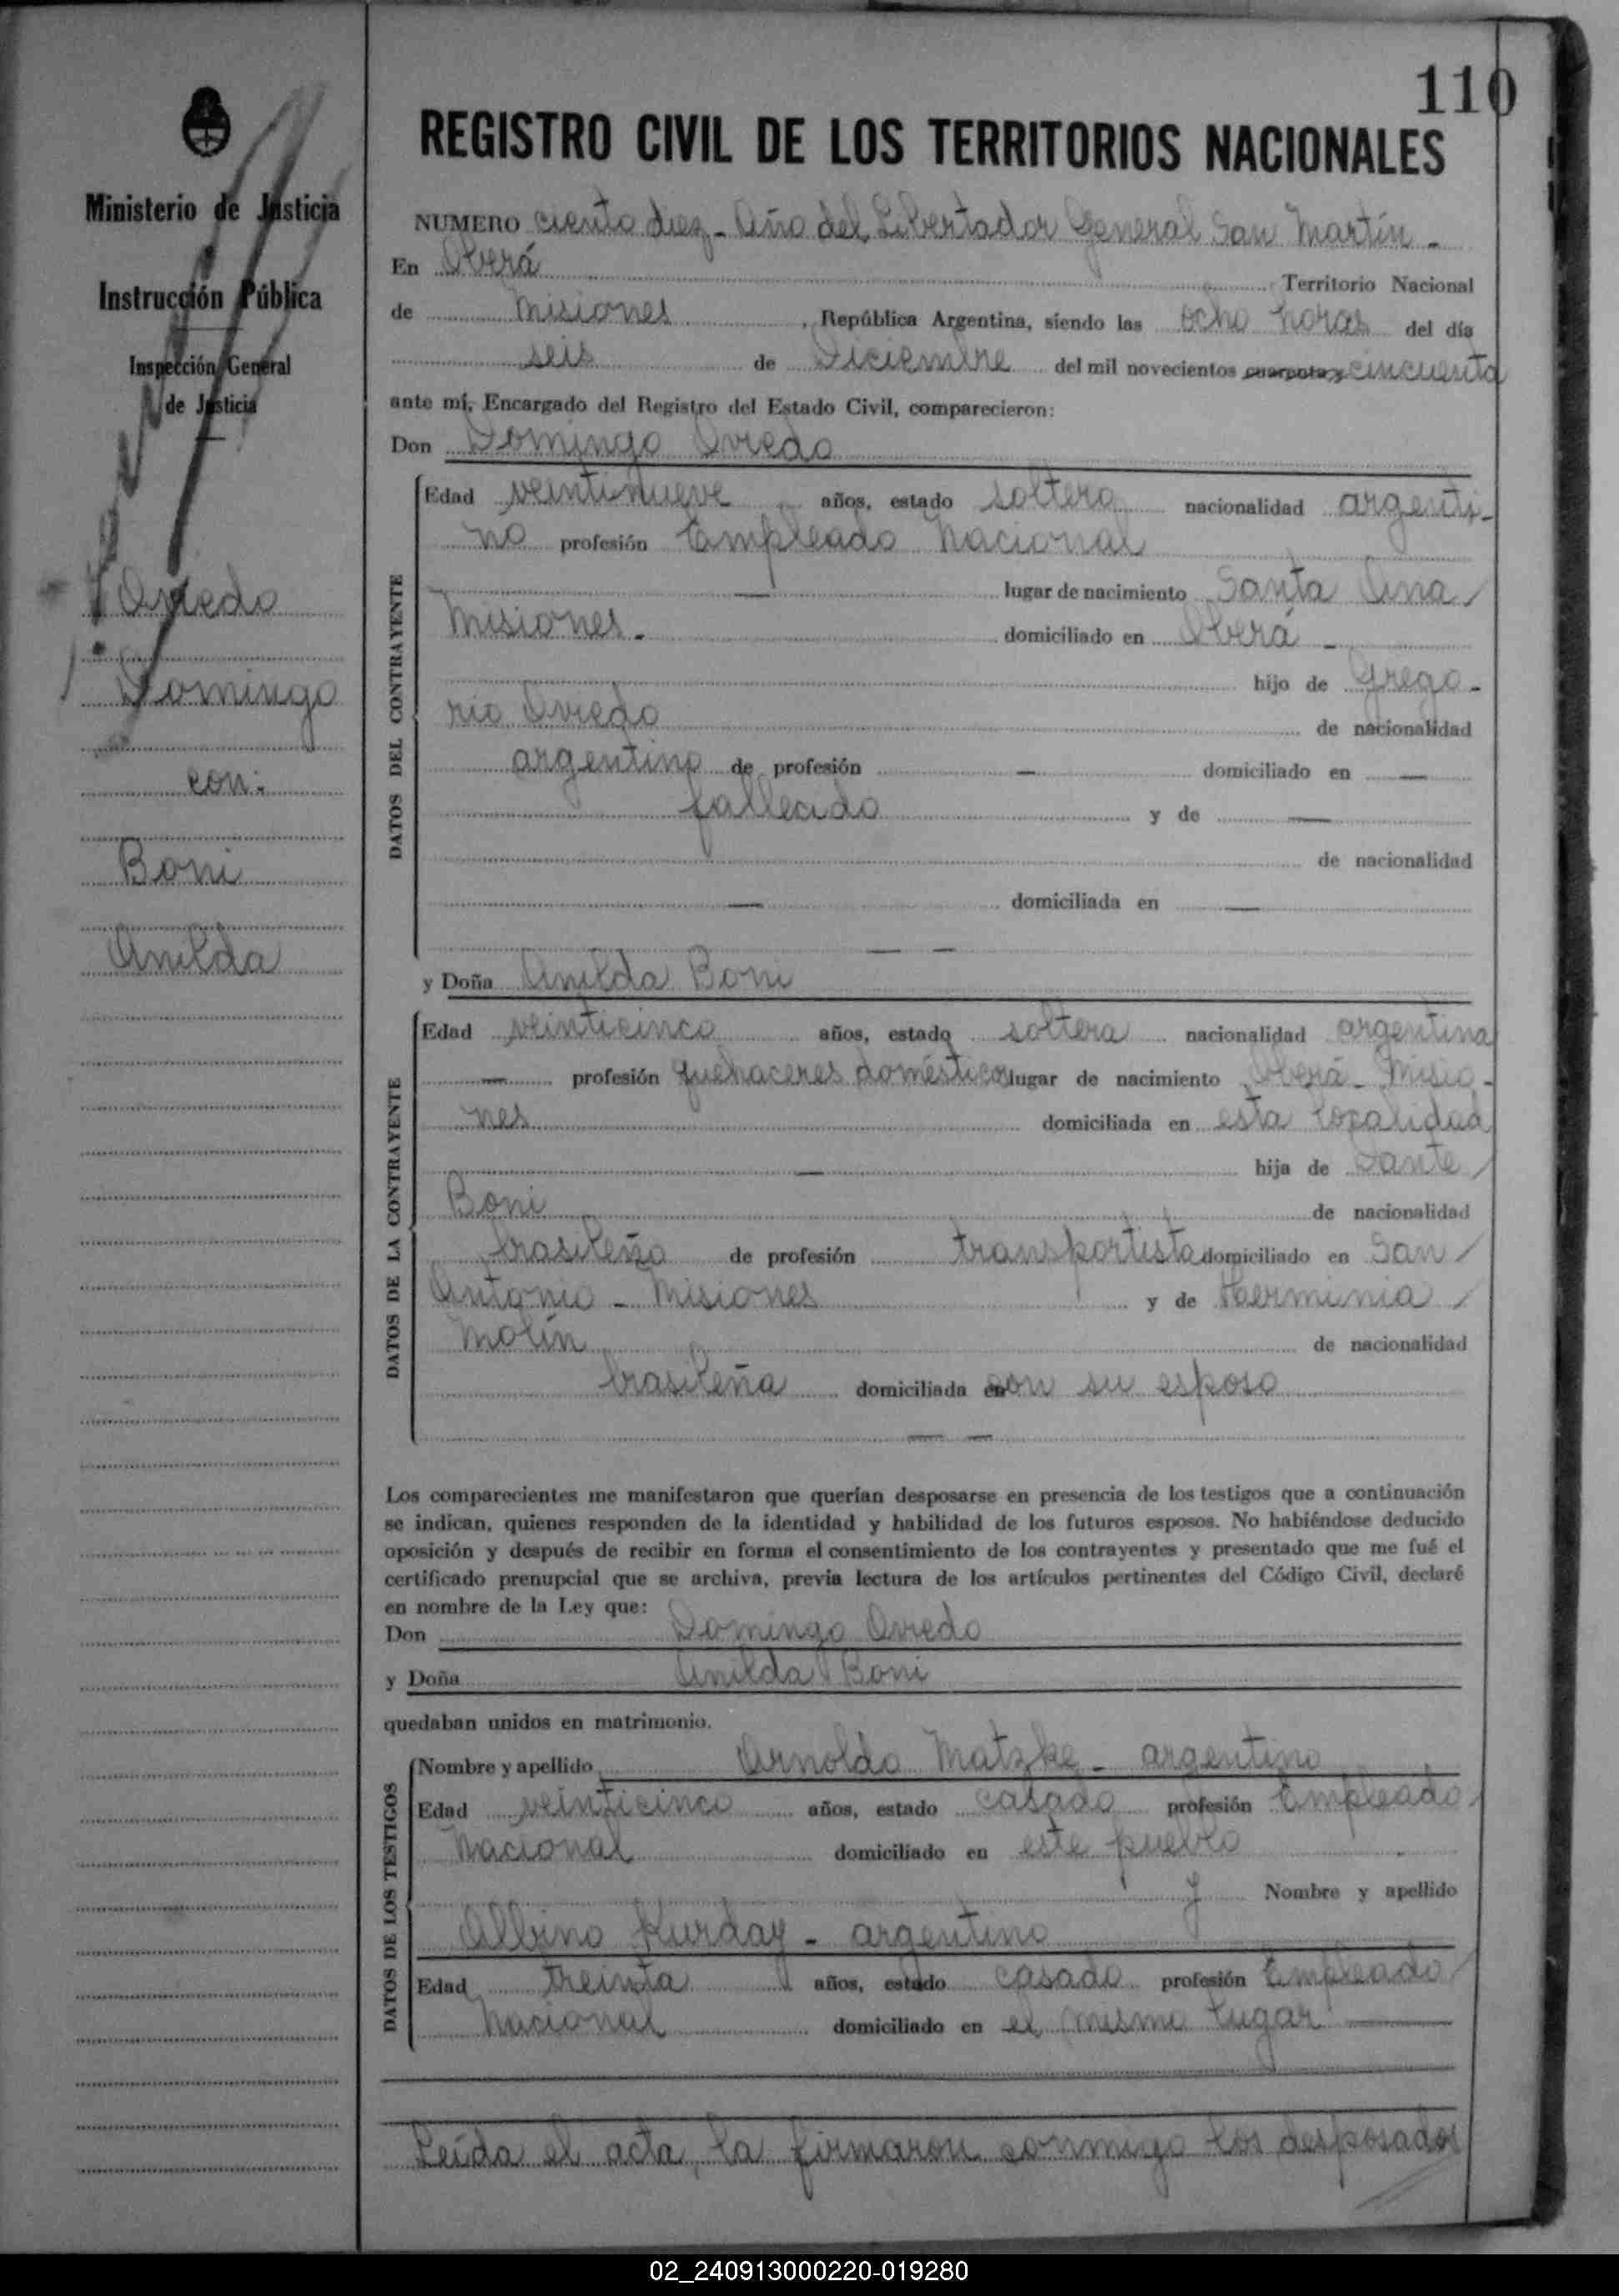 110
Ministerio de Justicia
e
Instrucción Pública
Inspección General
de Justicia
Oviedo
Domingo
con:
Boni
Anilda
REGISTRO CIVIL DE LOS TERRITORIOS NACIONALES
NUMERO ciento diez - Año del Libertador General San Martín -
En Oberá Territorio Nacional
de Misiones, República Argentina, siendo las ocho horas del día
seis de Diciembre del mil novecientos cuarenta y cincuenta
ante mí, Encargado del Registro del Estado Civil, comparecieron:
Don Domingo Oviedo
DATOS DEL CONTRAYENTE
Edad veintinueve años, estado soltero nacionalidad argenti-
no profesión Empleado Nacional
— lugar de nacimiento Santa Ana
Misiones. domiciliado en Oberá -
hijo de Grego-
rio Oviedo de nacionalidad
argentino de profesión — domiciliado en —
fallecido y de —
de nacionalidad
— domiciliada en —
— —
y Doña Anilda Boni
DATOS DE LA CONTRAYENTE
Edad veinticinco años, estado soltera nacionalidad argentina
— profesión quehaceres domésticos lugar de nacimiento Oberá - Misio-
nes domiciliada en esta localidad
— hija de Dante
Boni de nacionalidad
brasileño de profesión transportista domiciliado en San
Antonio - Misiones y de Herminia
Molin de nacionalidad
brasileña domiciliada en con su esposo
— —
Los comparecientes me manifestaron que querían desposarse en presencia de los testigos que a continuación
se indican, quienes responden de la identidad y habilidad de los futuros esposos. No habiéndose deducido
oposición y después de recibir en forma el consentimiento de los contrayentes y presentado que me fué el
certificado prenupcial que se archiva, previa lectura de los artículos pertinentes del Código Civil, declaré
en nombre de la Ley que:
Don Domingo Oviedo
y Doña Anilda Boni
quedaban unidos en matrimonio.
DATOS DE LOS TESTIGOS
Nombre y apellido Arnoldo Matzke - argentino
Edad veinticinco años, estado casado profesión Empleado
Nacional domiciliado en este pueblo
y Nombre y apellido
Albino Kurday - argentino
Edad treinta años, estado casado profesión Empleado
Nacional domiciliado en el mismo lugar —
Leída el acta, la firmaron conmigo los desposados
02_240913000220-019280